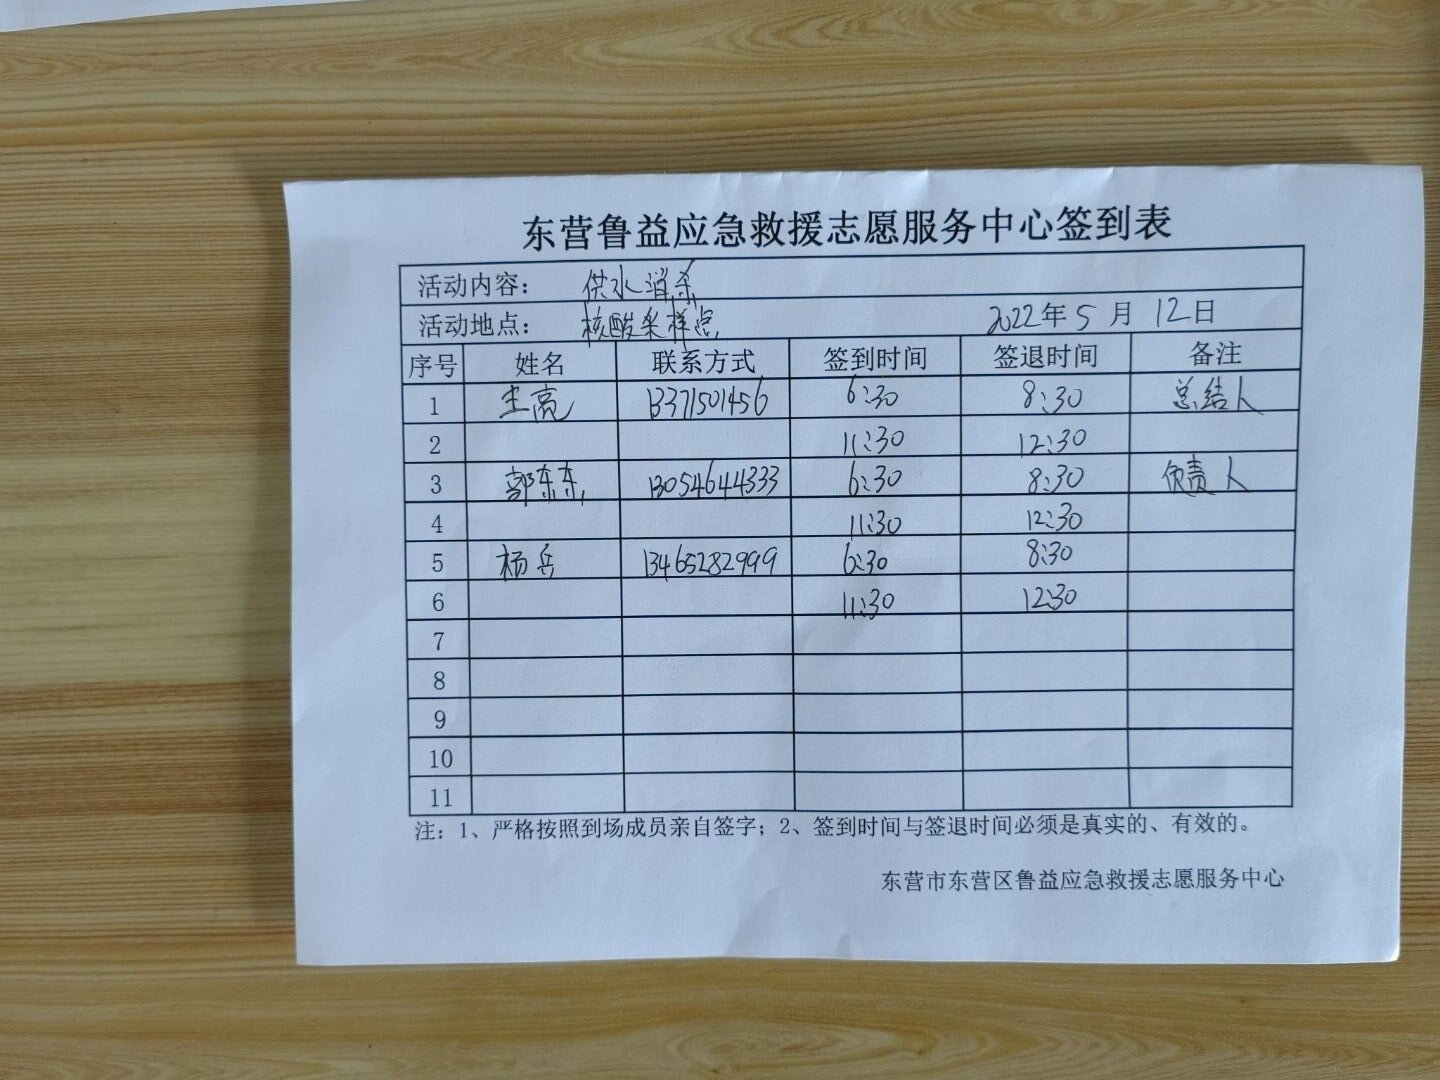 东营鲁益应急救援志愿服务中心签到表
活动内容： 供水 消杀
活动地点： 核酸采样点 2022年5月12日
序号 姓名 联系方式 签到时间 签退时间 备注
1 王亮 13371501456 6:30 8:30 总结人
2 11:30 12:30
3 郭东东 13054644333 6:30 8:30 负责人
4 11:30 12:30
5 杨兵 13465282999 6:30 8:30
6 11:30 12:30
7
8
9
10
11
注：1、严格按照到场成员亲自签字；2、签到时间与签退时间必须是真实的、有效的。
东营市东营区鲁益应急救援志愿服务中心